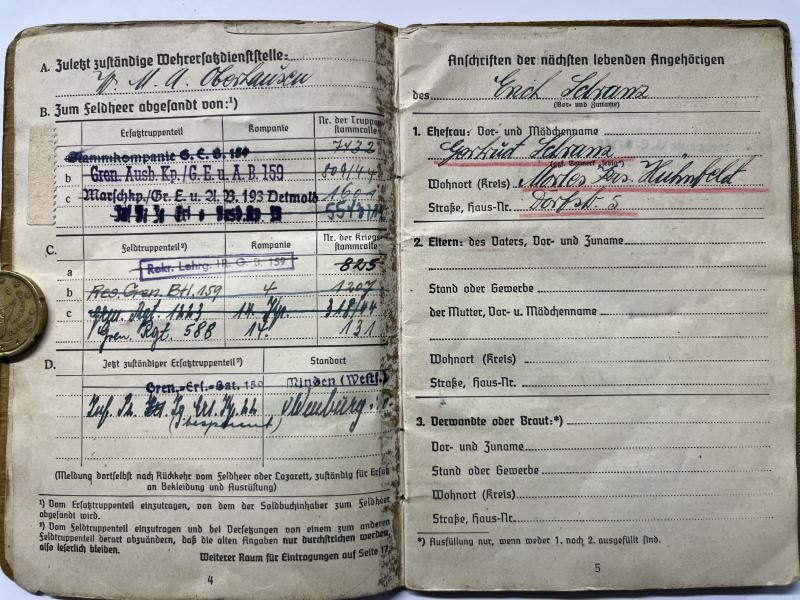 A. Zuletzt zuständige Wehrersatzdienststelle:
W. M. A. Oberhausen
B. Zum Feldheer abgesandt von:¹)
Ersatztruppenteil Kompanie Nr. der Truppenstammrolle
Stammkompanie G. E. B. 159 7432
b Gren. Ausb. Kp./G. E. u. A. B. 159 809/44
c Marschkp./Gr. E. u. A. B. 193 Detmold 1601
C. Feldtruppenteil²) Kompanie Nr. der Kriegsstammrolle
a Rekr. Lehrg. 159 825
b Res. Gren. Btl. 159 4 1207
c Gren. Rgt. 14. 318/44
Gren. Rgt. 588 14. 131
D. Jetzt zuständiger Ersatztruppenteil²) Standort
Gren.-Ers.-Bat. 159 Minden (Westf.)
Oldenburg
(Meldung dortselbst nach Rückkehr vom Feldheer oder Lazarett, zuständig für Ersatz
an Bekleidung und Ausrüstung)
¹) Vom Ersatztruppenteil einzutragen, von dem der Soldbuchinhaber zum Feldheer
abgesandt wird.
²) Vom Feldtruppenteil einzutragen und bei Versetzungen von einem zum anderen
Feldtruppenteil derart abzuändern, daß die alten Angaben nur durchstrichen werden,
also leserlich bleiben.
Weiterer Raum für Eintragungen auf Seite 17
4
Anschriften der nächsten lebenden Angehörigen
des Erich Schranz
(Vor- und Zuname)
1. Ehefrau: Vor- und Mädchenname
Gertrud Schranz
Wohnort (Kreis) Mörles Krs. Hünfeld
Straße, Haus-Nr. Dorfstr. 5
2. Eltern: des Vaters, Vor- und Zuname
Stand oder Gewerbe
der Mutter, Vor- u. Mädchenname
Wohnort (Kreis)
Straße, Haus-Nr.
3. Verwandte oder Braut:*)
Vor- und Zuname
Stand oder Gewerbe
Wohnort (Kreis)
Straße, Haus-Nr.
*) Ausfüllung nur, wenn weder 1. noch 2. ausgefüllt sind.
5